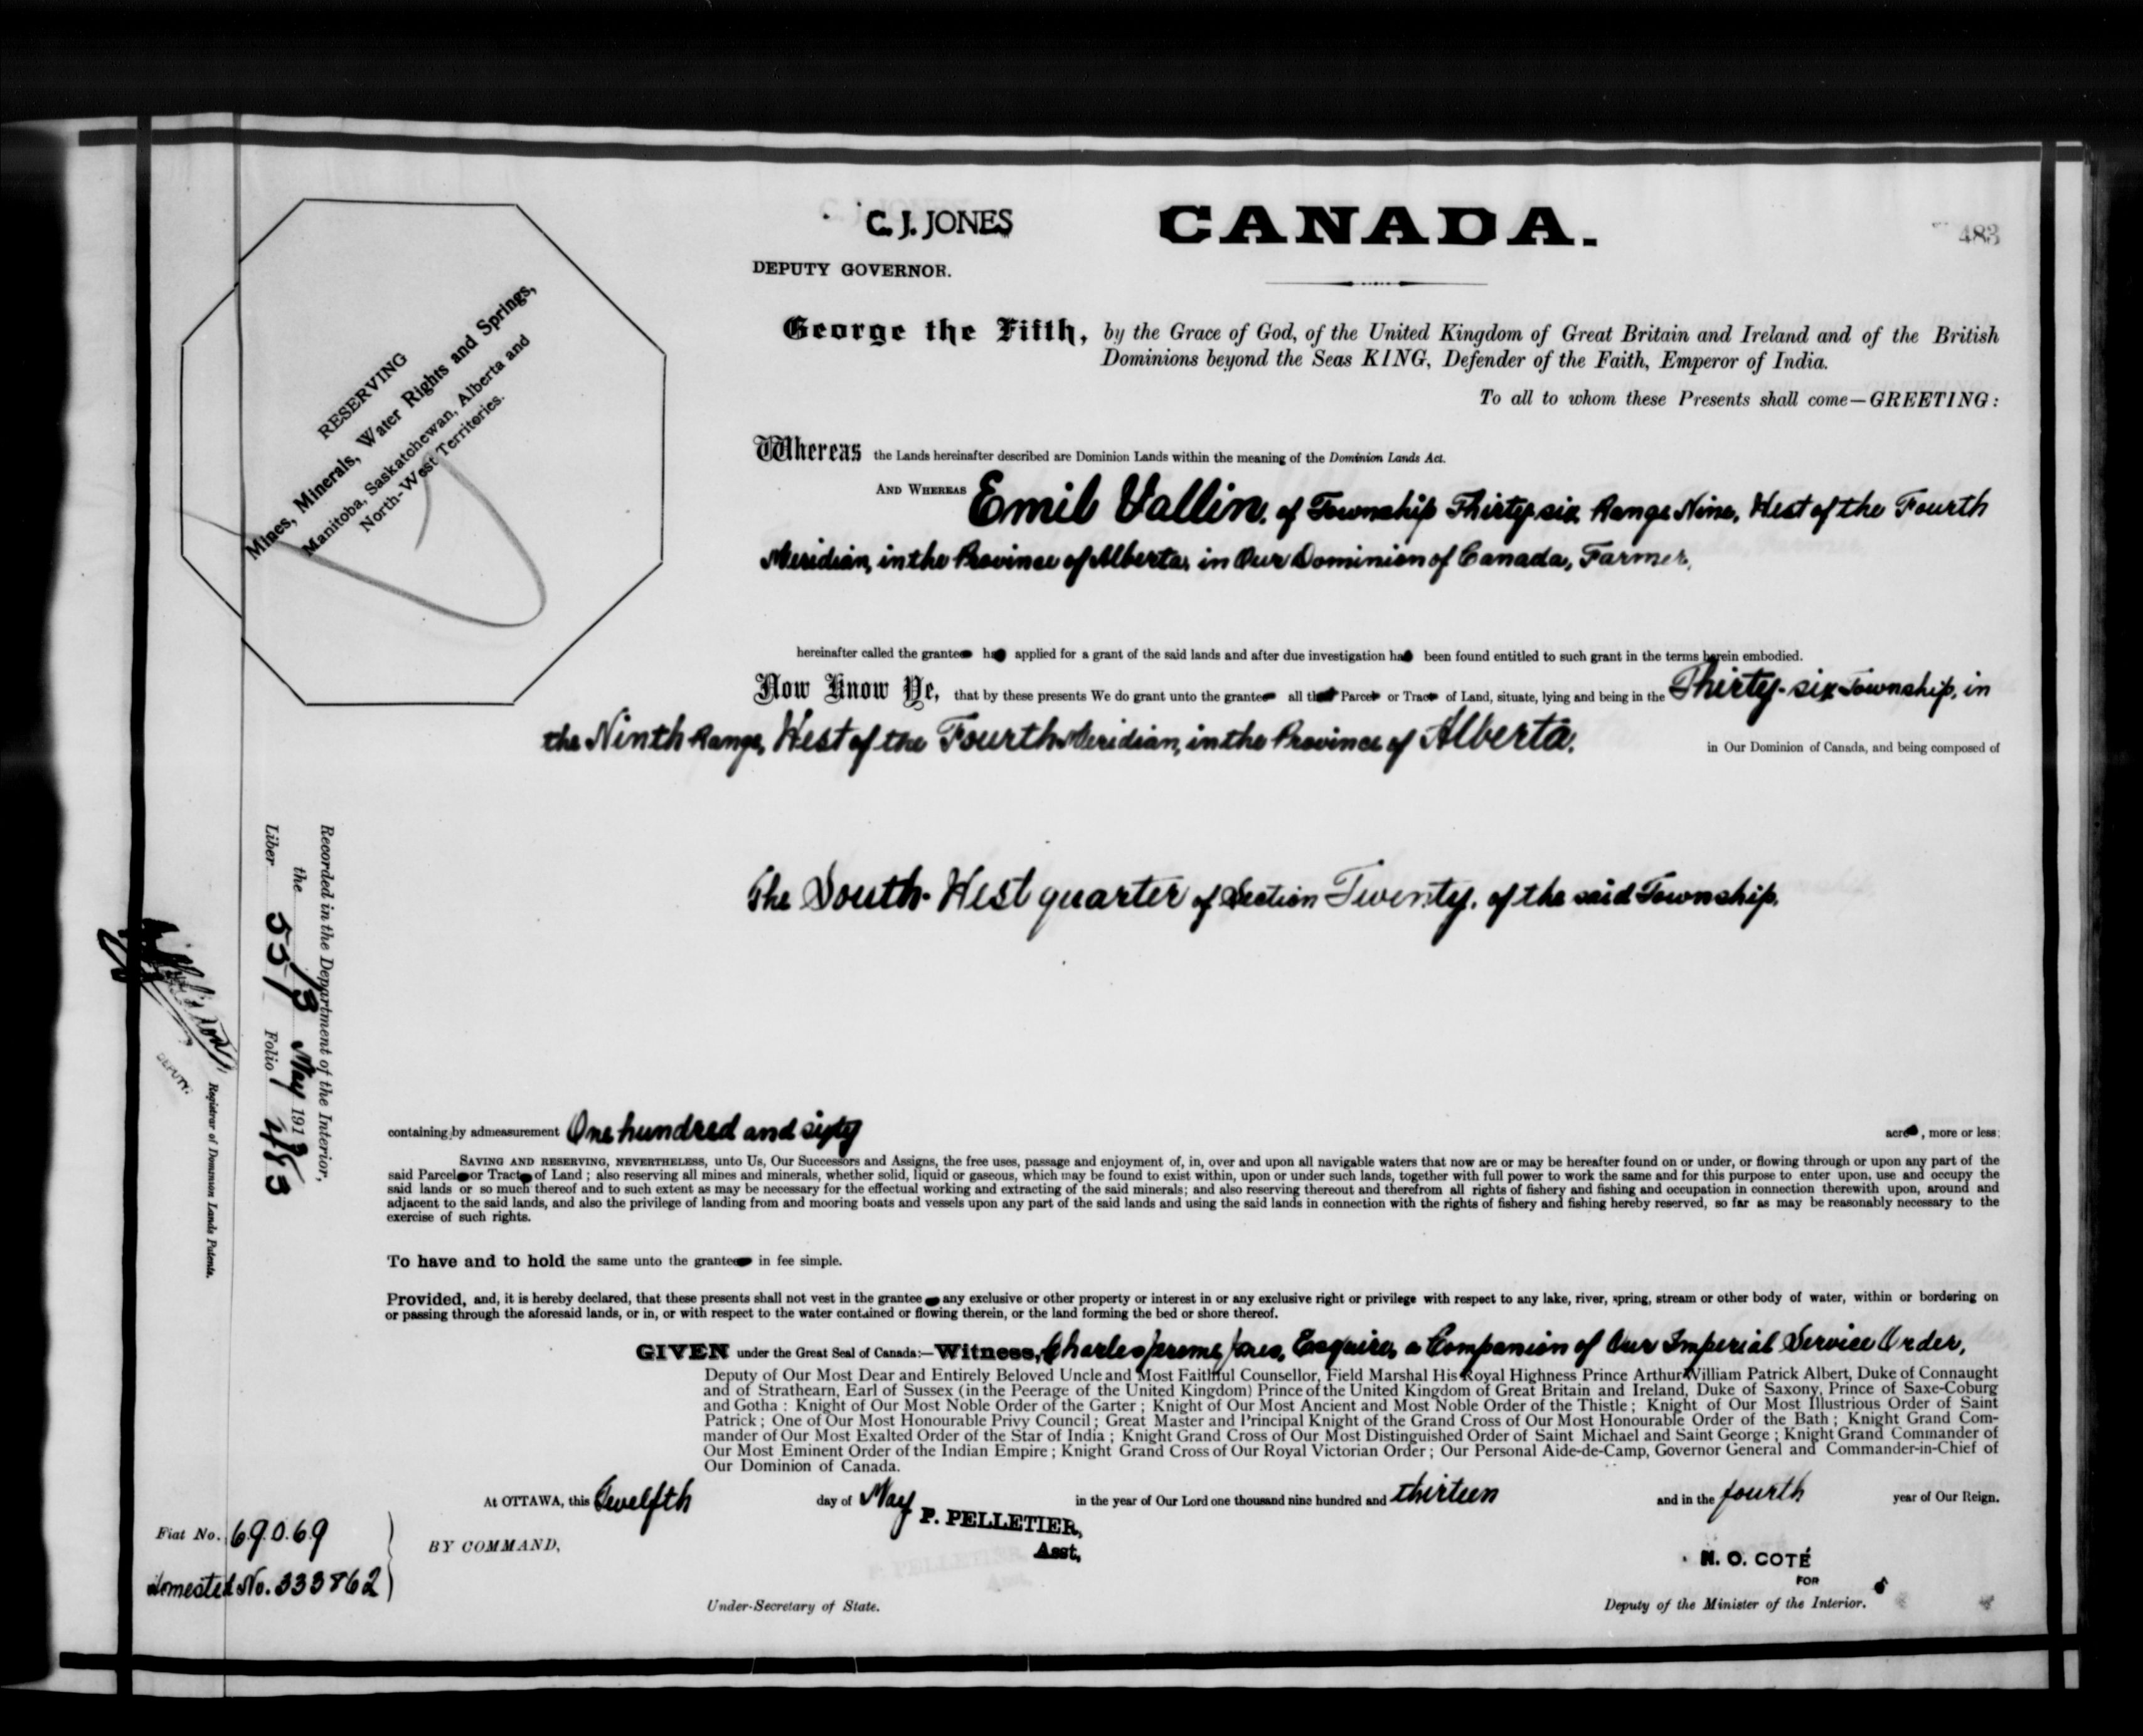 C. J. JONES
CANADA.
483
DEPUTY GOVERNOR.
George the Fifth, by the Grace of God, of the United Kingdom of Great Britain and Ireland and of the British
Dominions beyond the Seas KING, Defender of the Faith, Emperor of India.
To all to whom these Presents shall come—GREETING:
RESERVING
Mines, Minerals, Water Rights and Springs,
Manitoba, Saskatchewan, Alberta and
North-West Territories.
Whereas the Lands hereinafter described are Dominion Lands within the meaning of the Dominion Lands Act.
AND WHEREAS Emil Vallin, of Township Thirty-six, Range Nine, West of the Fourth
Meridian, in the Province of Alberta, in Our Dominion of Canada, Farmer,
hereinafter called the grantee ha applied for a grant of the said lands and after due investigation ha been found entitled to such grant in the terms herein embodied.
Now Know Ye, that by these presents We do grant unto the grantee all that Parcel or Tract of Land, situate, lying and being in the Thirty-six Township, in
the Ninth Range, West of the Fourth Meridian, in the Province of Alberta,
in Our Dominion of Canada, and being composed of
The South-West quarter of Section Twenty, of the said Township.
Recorded in the Department of the Interior,
the 13 May 1913
Liber 551 Folio 483
DEPUTY.
Registrar of Dominion Lands Patents.
containing by admeasurement One hundred and sixty acres, more or less;
SAVING AND RESERVING, NEVERTHELESS, unto Us, Our Successors and Assigns, the free uses, passage and enjoyment of, in, over and upon all navigable waters that now are or may be hereafter found on or under, or flowing through or upon any part of the
said Parcel or Tract of Land; also reserving all mines and minerals, whether solid, liquid or gaseous, which may be found to exist within, upon or under such lands, together with full power to work the same and for this purpose to enter upon, use and occupy the
said lands or so much thereof and to such extent as may be necessary for the effectual working and extracting of the said minerals; and also reserving thereout and therefrom all rights of fishery and fishing and occupation in connection therewith upon, around and
adjacent to the said lands, and also the privilege of landing from and mooring boats and vessels upon any part of the said lands and using the said lands in connection with the rights of fishery and fishing hereby reserved, so far as may be reasonably necessary to the
exercise of such rights.
To have and to hold the same unto the grantee in fee simple.
Provided, and, it is hereby declared, that these presents shall not vest in the grantee any exclusive or other property or interest in or any exclusive right or privilege with respect to any lake, river, spring, stream or other body of water, within or bordering on
or passing through the aforesaid lands, or in, or with respect to the water contained or flowing therein, or the land forming the bed or shore thereof.
GIVEN under the Great Seal of Canada:—Witness, Charles Jerome Jones, Esquire, a Companion of Our Imperial Service Order,
Deputy of Our Most Dear and Entirely Beloved Uncle and Most Faithful Counsellor, Field Marshal His Royal Highness Prince Arthur William Patrick Albert, Duke of Connaught
and of Strathearn, Earl of Sussex (in the Peerage of the United Kingdom) Prince of the United Kingdom of Great Britain and Ireland, Duke of Saxony, Prince of Saxe-Coburg
and Gotha: Knight of Our Most Noble Order of the Garter; Knight of Our Most Ancient and Most Noble Order of the Thistle; Knight of Our Most Illustrious Order of Saint
Patrick; One of Our Most Honourable Privy Council; Great Master and Principal Knight of the Grand Cross of Our Most Honourable Order of the Bath; Knight Grand Com-
mander of Our Most Exalted Order of the Star of India; Knight Grand Cross of Our Most Distinguished Order of Saint Michael and Saint George; Knight Grand Commander of
Our Most Eminent Order of the Indian Empire; Knight Grand Cross of Our Royal Victorian Order; Our Personal Aide-de-Camp, Governor General and Commander-in-Chief of
Our Dominion of Canada.
At OTTAWA, this Twelfth day of May in the year of Our Lord one thousand nine hundred and thirteen and in the fourth year of Our Reign.
Fiat No. 69069
BY COMMAND,
P. PELLETIER,
Asst,
N. O. COTÉ
FOR
Homestead No. 333862
Under-Secretary of State.
Deputy of the Minister of the Interior.